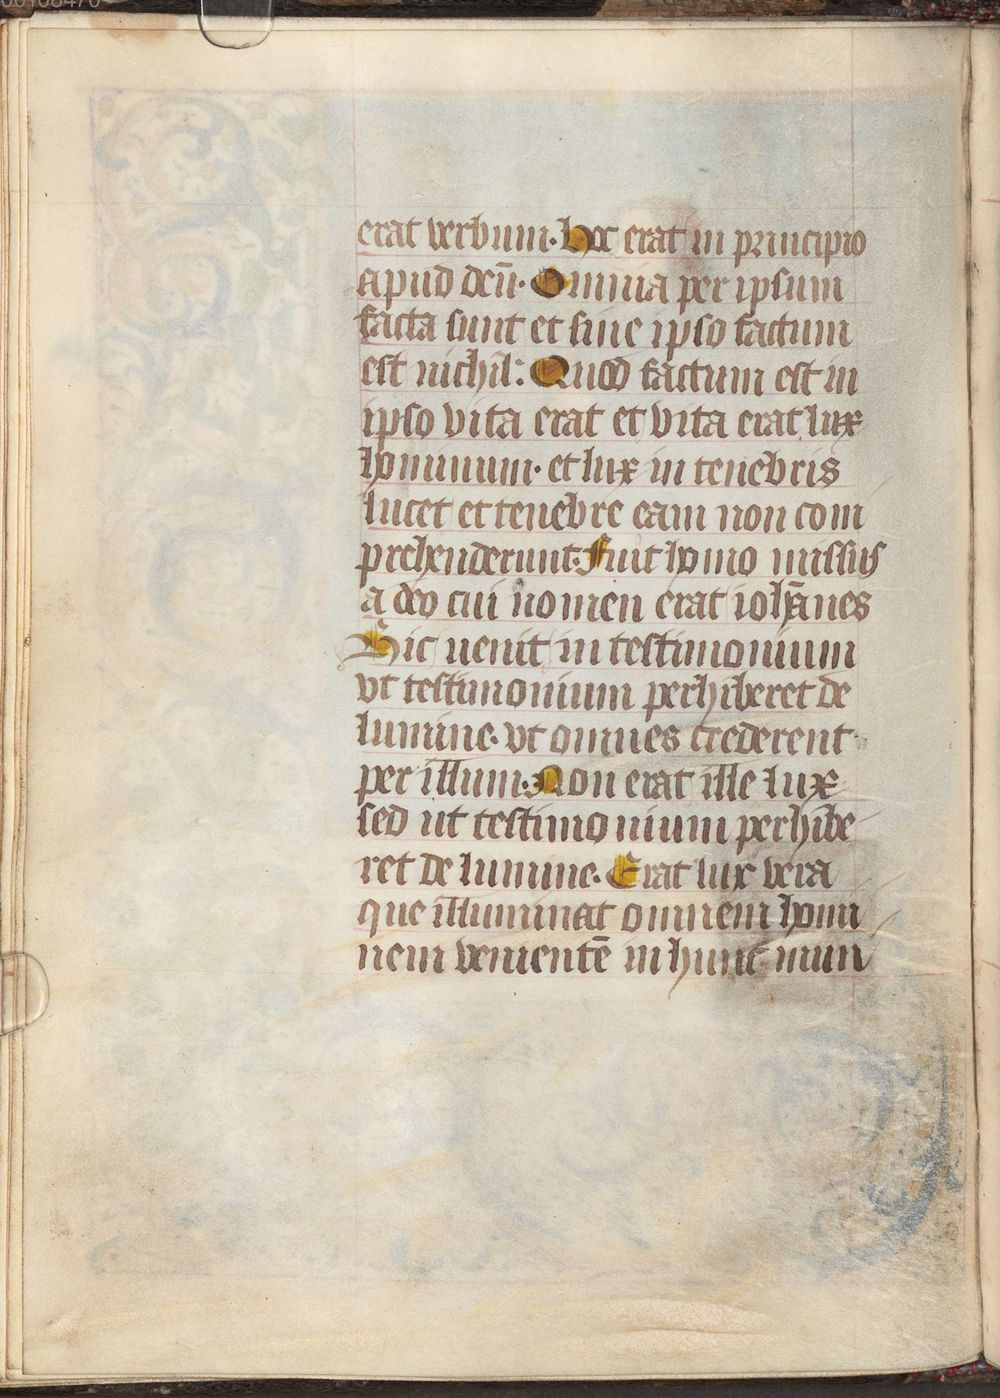 erat verbum. hoc erat in principio
apud deū. Omnia per ipsum
facta sunt et sine ipso factum
est nichil: Quod factum est in
ipso vita erat et vita erat lux
hominum. et lux in tenebris
lucet et tenebre eam non com
prehenderunt. Fuit homo missus
a deo cui nomen erat iohānes
Hic uenit in testimonium
vt testimonium perhiberet de
lumine. vt omnes crederent
per illum. Non erat ille lux
sed ut testimonium perhibe
ret de lumine. Erat lux vera
que illuminat omnem homi
nem venientē in hunc mun